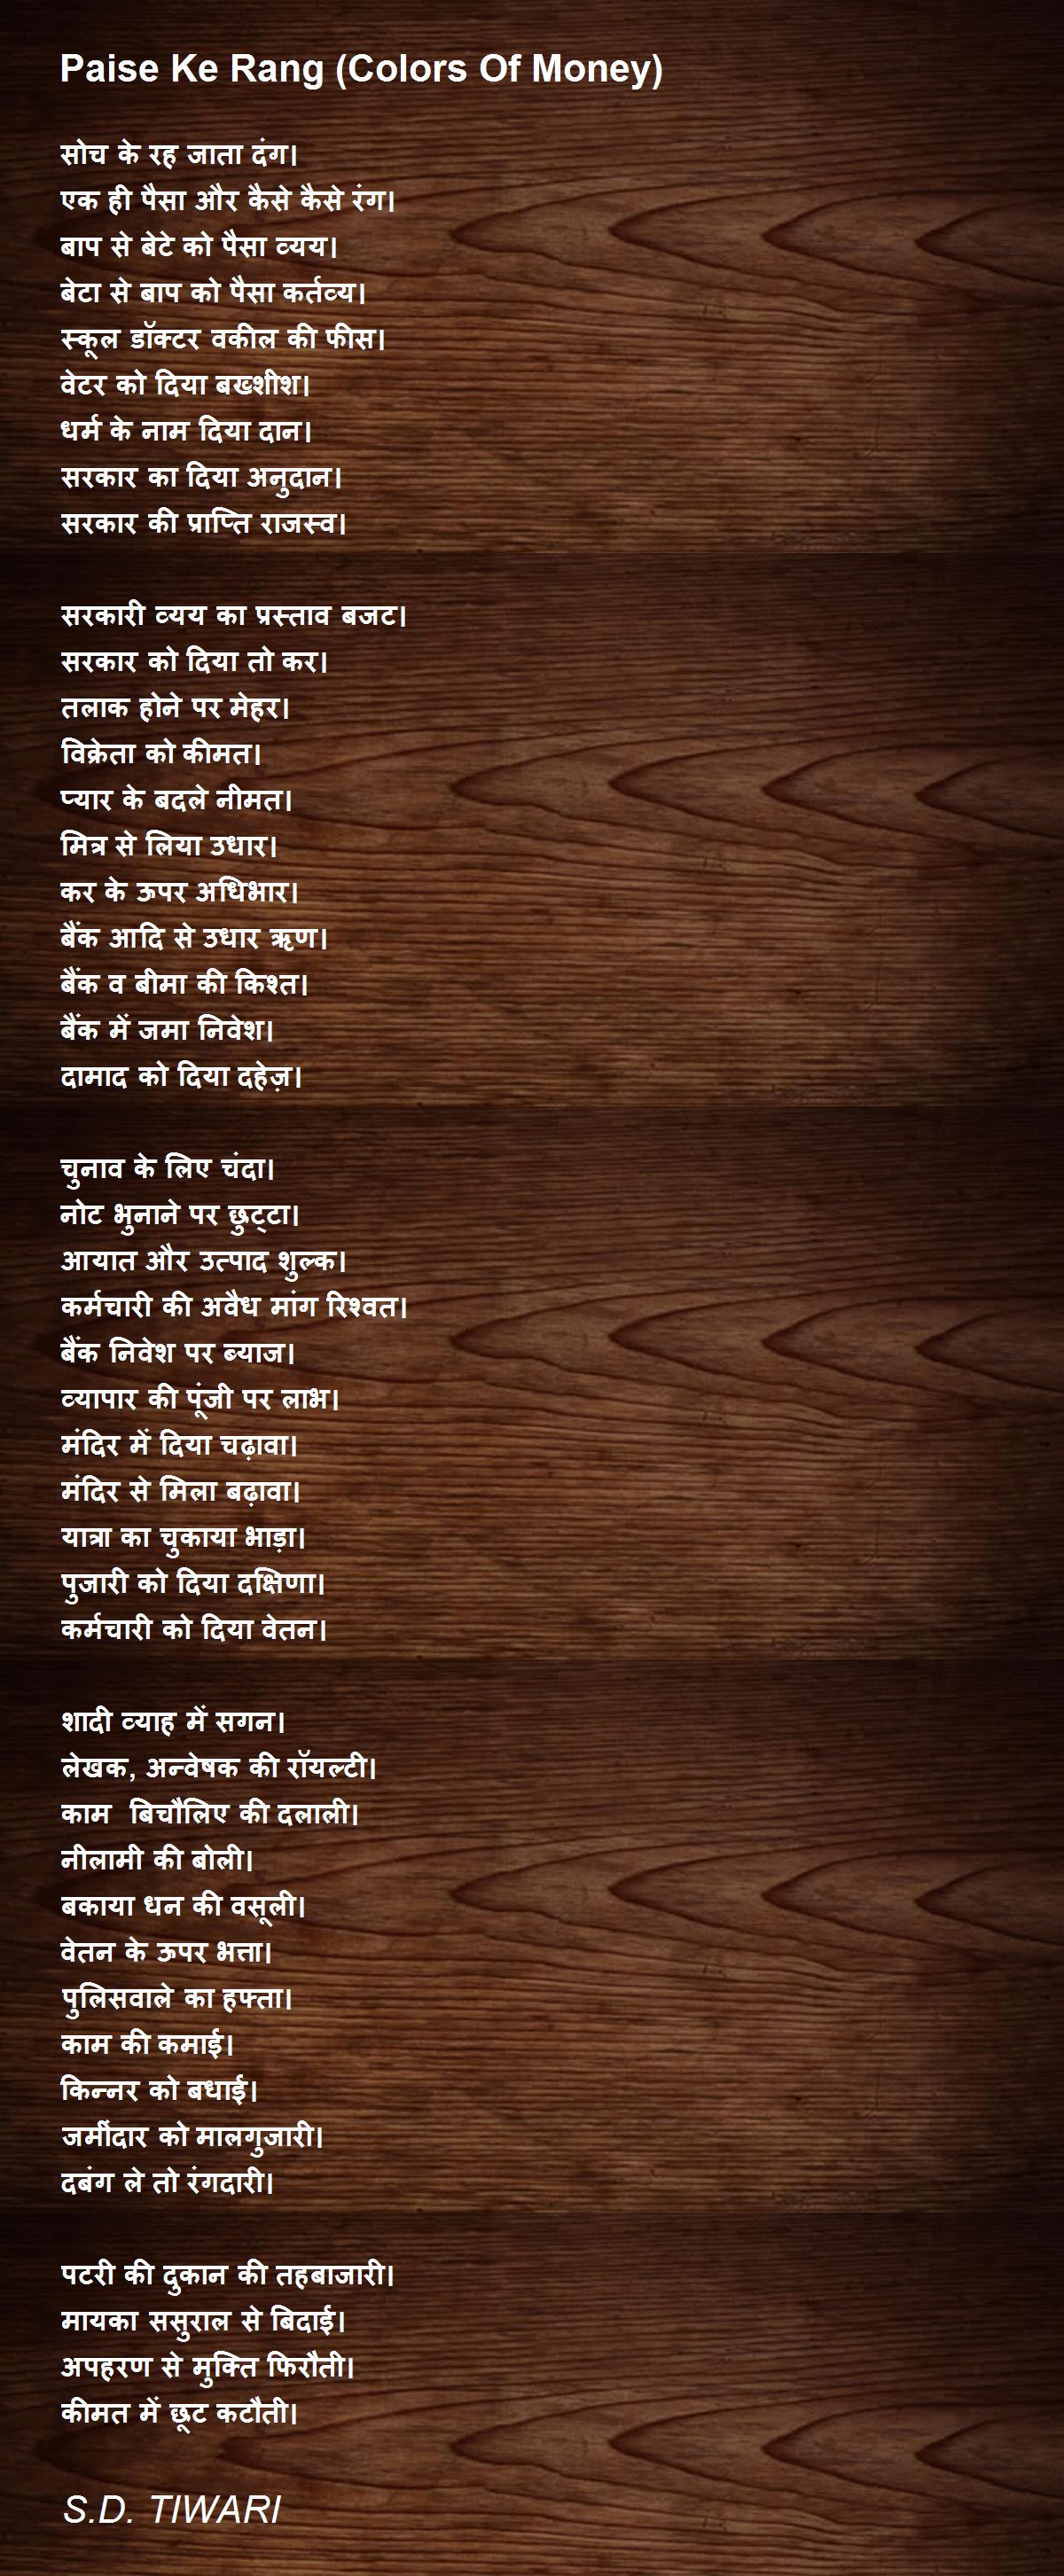 Paise Ke Rang (Colors Of Money)
सोच के रह जाता दंग।
एक ही पैसा और कैसे कैसे रंग।
बाप से बेटे को पैसा व्यय।
बेटा से बाप को पैसा कर्तव्य।
स्कूल डॉक्टर वकील की फीस।
वेटर को दिया बख्शीश।
धर्म के नाम दिया दान।
सरकार का दिया अनुदान।
सरकार की प्राप्ति राजस्व।
सरकारी व्यय का प्रस्ताव बजट।
सरकार को दिया तो कर।
तलाक होने पर मेहर।
विक्रेता को कीमत।
प्यार के बदले नीमत।
मित्र से लिया उधार।
कर के ऊपर अधिभार।
बैंक आदि से उधार ऋण।
बैंक व बीमा की किश्त।
बैंक में जमा निवेश।
दामाद को दिया दहेज़।
चुनाव के लिए चंदा।
नोट भुनाने पर छुट्टा।
आयात और उत्पाद शुल्क।
कर्मचारी की अवैध मांग रिश्वत।
बैंक निवेश पर ब्याज।
व्यापार की पूंजी पर लाभ।
मंदिर में दिया चढ़ावा।
मंदिर से मिला बढ़ावा।
यात्रा का चुकाया भाड़ा।
पुजारी को दिया दक्षिणा।
कर्मचारी को दिया वेतन।
शादी व्याह में सगन।
लेखक, अन्वेषक की रॉयल्टी।
काम  बिचौलिए की दलाली।
नीलामी की बोली।
बकाया धन की वसूली।
वेतन के ऊपर भत्ता।
पुलिसवाले का हफ्ता।
काम की कमाई।
किन्नर को बधाई।
जमींदार को मालगुजारी।
दबंग ले तो रंगदारी।
पटरी की दुकान की तहबाजारी।
मायका ससुराल से बिदाई।
अपहरण से मुक्ति फिरौती।
कीमत में छूट कटौती।
S.D. TIWARI